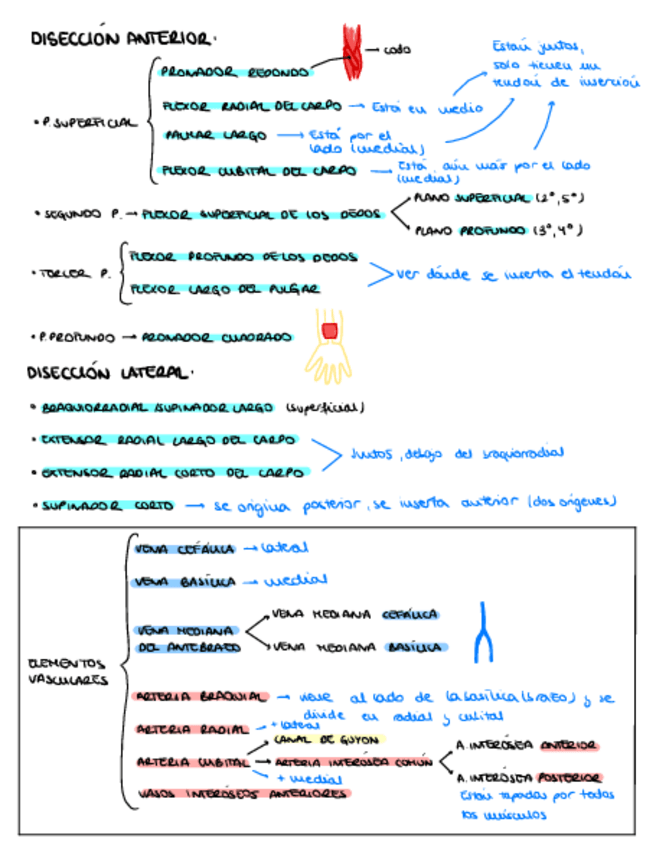 DISECCIÓN ANTERIOR.
PRONADOR REDONDO
→ codo
Están juntos,
solo tienen un
tendón de inserción
• P. SUPERFICIAL
FLEXOR RADIAL DEL CARPO → Está en medio
PALMAR LARGO → Está por el
lado (medial)
FLEXOR CUBITAL DEL CARPO → Está aún más por el lado
(medial)
• SEGUNDO P. → FLEXOR SUPERFICIAL DE LOS DEDOS
PLANO SUPERFICIAL (2º, 5º)
PLANO PROFUNDO (3º, 4º)
• TERCER P.
FLEXOR PROFUNDO DE LOS DEDOS
FLEXOR LARGO DEL PULGAR
ver dónde se inserta el tendón
• P. PROFUNDO → PRONADOR CUADRADO
DISECCIÓN LATERAL.
• BRAQUIORRADIAL/SUPINADOR LARGO (superficial)
• EXTENSOR RADIAL LARGO DEL CARPO
• EXTENSOR RADIAL CORTO DEL CARPO
Juntos, debajo del braquiorradial
• SUPINADOR CORTO → se origina posterior, se inserta anterior (dos orígenes)
ELEMENTOS
VASCULARES
VENA CEFÁLICA → lateral
VENA BASÍLICA → medial
VENA MEDIANA
DEL ANTEBRAZO
VENA MEDIANA CEFÁLICA
VENA MEDIANA BASÍLICA
ARTERIA BRAQUIAL → viene al lado de la basílica (brazo) y se
divide en radial y cubital
ARTERIA RADIAL → + lateral
CANAL DE GUYON
ARTERIA CUBITAL → ARTERIA INTERÓSEA COMÚN
+ medial
A. INTERÓSEA ANTERIOR
A. INTERÓSEA POSTERIOR
VASOS INTERÓSEOS ANTERIORES
Están tapados por todos
los músculos